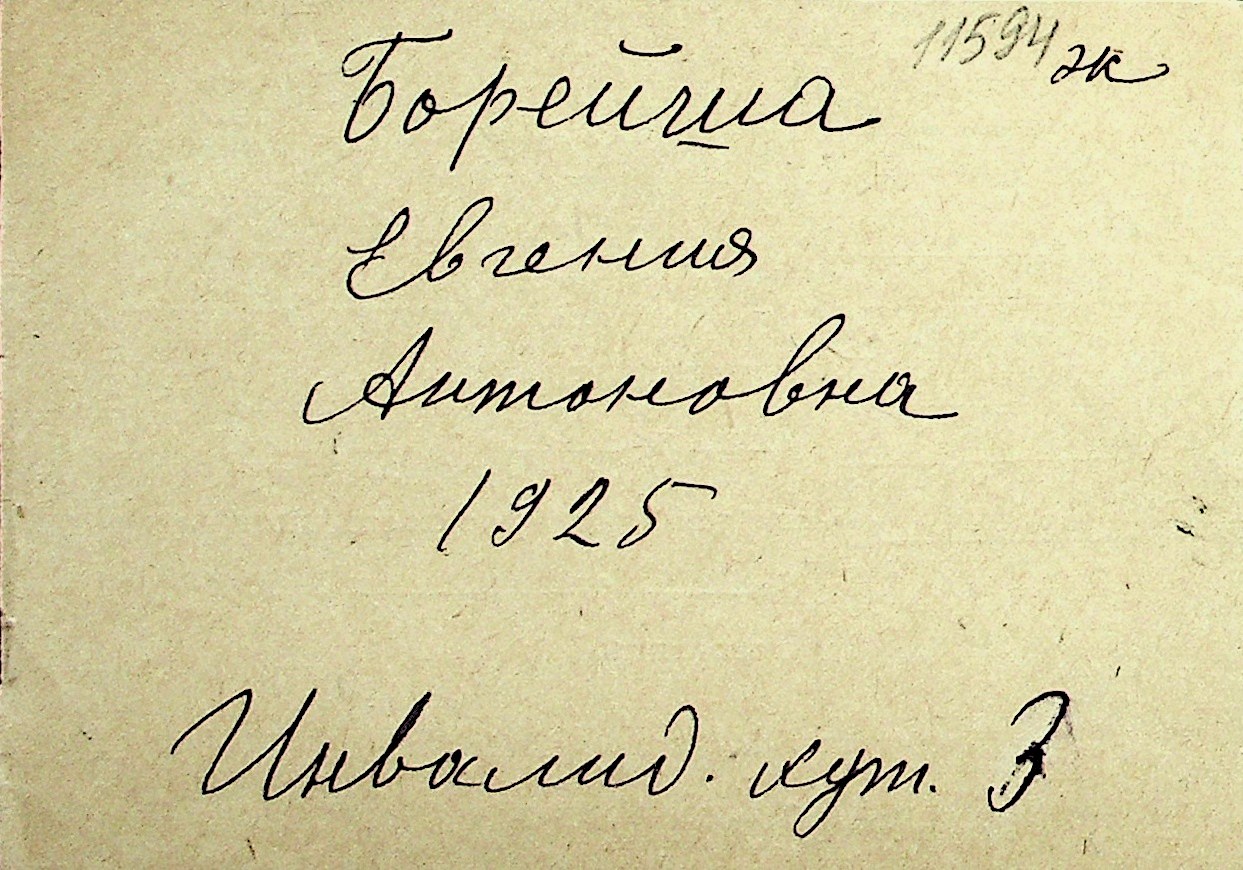 11594 эк
Борейша
Евгения
Антоновна
1925
Инвалид. хут. 3